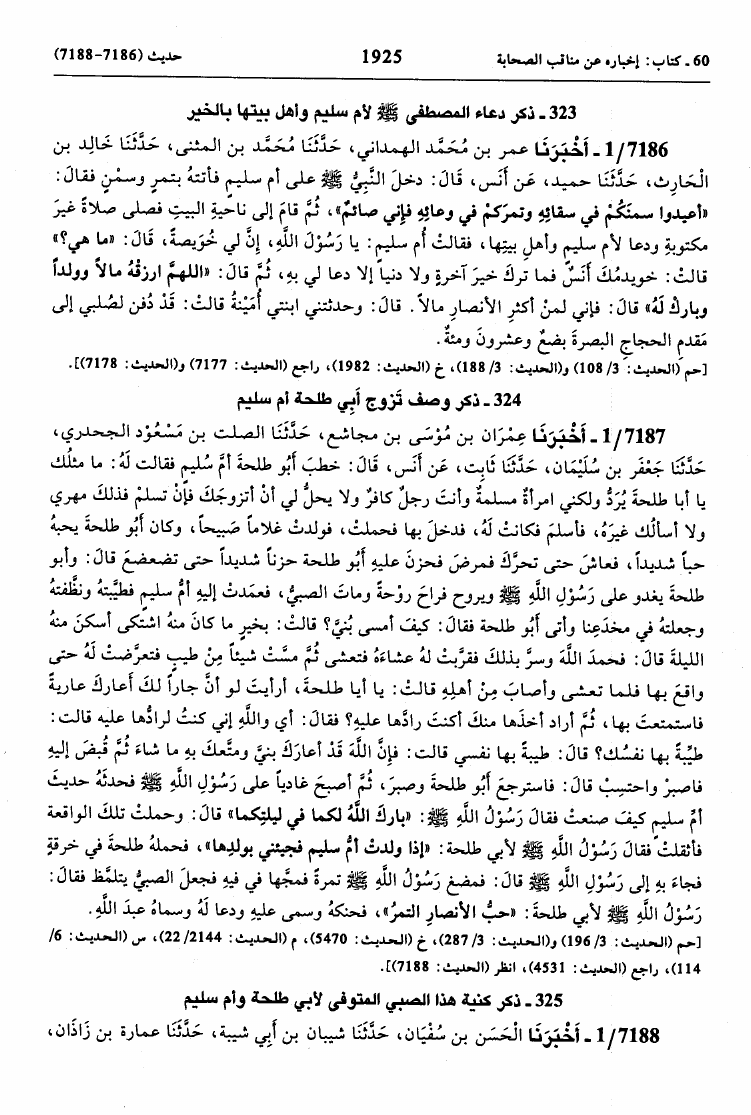 60 ـ كتاب: إخباره عن مناقب الصحابة 1925 حديث (7186-7188)
323 ـ ذكر دعاء المصطفى ﷺ لأم سليم وأهل بيتها بالخير
1/7186 ـ أَخْبَرَنَا عمر بن مُحَمَّد الهمداني، حَدَّثَنَا مُحَمَّد بن المثنى، حَدَّثَنَا خَالِد بن
الْحَارِث، حَدَّثَنَا حميد، عَن أَنَس، قَالَ: دخلَ النَّبِيُّ ﷺ على أم سليمٍ فأتتهُ بتمرٍ وسمْنٍ فقالَ:
«أعيدوا سمنَكُمْ في سقائِهِ وتمرَكمْ في وعائِهِ فإني صائمٌ»، ثُمَّ قامَ إلى ناحيةِ البيتِ فصلى صلاةً غيرَ
مكتوبةٍ ودعا لأم سليم وأهلِ بيتِها، فقالتْ أم سليم: يا رَسُوْلَ اللَّهِ، إِنَّ لي خُوَيصةً، قَالَ: «ما هي؟»
قالتْ: خويدمُكَ أَنَسٌ فما تركَ خيرَ آخرةٍ ولا دنياً إلا دعا لي بهِ، ثُمَّ قالَ: «اللهمَّ ارزقْهُ مالاً وولداً
وباركْ لَهُ» قالَ: فإني لمنْ أكثرِ الأنصارِ مالاً. قالَ: وحدثتني ابنتي أُمَيْنَةُ قالتْ: قَدْ دُفن لصُلبي إلى
مَقدمِ الحجاجِ البصرةَ بضعٌ وعشرونَ ومئةٌ.
[حم (الحديث: 3/ 108) و(الحديث: 3/ 188)، خ (الحديث: 1982)، راجع (الحديث: 7177) و(الحديث: 7178)].
324 ـ ذكر وصف تَزوج أَبي طلحة أم سليم
1/7187 ـ أَخْبَرَنَا عِمْرَان بن مُوْسَى بن مجاشع، حَدَّثَنَا الصلت بن مَسْعُوْد الجحدري،
حَدَّثَنَا جَعْفَر بن سُلَيْمَان، حَدَّثَنَا ثَابِت، عَن أَنَس، قَالَ: خطبَ أَبُو طلحةَ أمَّ سُليمٍ فقالت لَهُ: ما مثلُك
يا أبا طلحةَ يُرَدُّ ولكني امرأةٌ مسلمةٌ وأنتَ رجلٌ كافرٌ ولا يحلُّ لي أنْ أتزوجَكَ فإنْ تسلمْ فذلكَ مهري
ولا أسألُك غيرَهُ، فأسلمَ فكانتْ لَهُ، فدخلَ بها فحملتْ، فولدتْ غلاماً صَبيحاً، وكان أَبُو طلحةَ يحبهُ
حباً شديداً، فعاشَ حتى تحرَّكَ فمرضَ فحزنَ عليهِ أَبُو طلحة حزناً شديداً حتى تضعضعَ قالَ: وأبو
طلحةَ يغدو على رَسُوْلِ اللَّهِ ﷺ ويروح فراحَ روْحةً وماتَ الصبيُّ، فعمَدتْ إليهِ أمُّ سليمٍ فطيَّبتهُ ونظَّفتهُ
وجعلتهُ في مخدَعِنا وأتى أَبُو طلحة فقالَ: كيفَ أمسى بُنيَّ؟ قالتْ: بخيرٍ ما كانَ منهُ اشتكى أسكنَ منهُ
الليلةَ قالَ: فحمدَ اللَّهَ وسرَّ بذلكَ فقرَّبتْ لهُ عشاءَهُ فتعشى ثُمَّ مسَّتْ شيئاً مِنْ طيبٍ فتعرَّضتْ لَهُ حتى
واقعَ بها فلما تعشى وأصابَ مِنْ أهلِهِ قالتْ: يا أبا طلحةَ، أرأيتَ لو أنَّ جاراً لكَ أعارَكَ عاريةً
فاستمتعتَ بها، ثُمَّ أراد أخذَها منكَ أكنتَ رادَّها عليهِ؟ فقالَ: أي واللَّهِ إني كنتُ لرادُّها عليه قالت:
طيِّبةً بها نفسُك؟ قالَ: طيبةً بها نفسي قالت: فإنَّ اللَّهَ قَدْ أعارَكَ بنيَّ ومتَّعكَ بهِ ما شاءَ ثُمَّ قُبضَ إليهِ
فاصبرْ واحتسِبْ قالَ: فاسترجعَ أَبُو طلحةَ وصبرَ، ثُمَّ أصبحَ غادياً على رَسُوْلِ اللَّهِ ﷺ فحدثَهُ حديثَ
أمِّ سليمٍ كيفَ صنعتْ فقالَ رَسُوْلُ اللَّهِ ﷺ: «باركَ اللَّهُ لكما في ليلتِكما» قالَ: وحملتْ تلكَ الواقعة
فأثقلتْ فقالَ رَسُوْلُ اللَّهِ ﷺ لأبي طلحة: «إذا ولدتْ أمُّ سليم فجيئني بولدِها»، فحملهُ طلحةَ في خرقةٍ
فجاءَ بهِ إلى رَسُوْلِ اللَّهِ ﷺ قالَ: فمضغَ رَسُوْلُ اللَّهِ ﷺ تمرةً فمجَّها في فيهِ فجعلَ الصبيُّ يتلمَّظ فقالَ:
رَسُوْلُ اللَّهِ ﷺ لأبي طلحةَ: «حبُّ الأنصارِ التمرُ»، فحنكهُ وسمى عليهِ ودعا لَهُ وسماهُ عبدَ اللَّهِ.
[حم (الحديث: 3/ 196) و(الحديث: 3/ 287)، خ (الحديث: 5470)، م (الحديث: 2144/ 22)، س (الحديث: 6/
114)، راجع (الحديث: 4531)، انظر (الحديث: 7188)].
325 ـ ذكر كنية هذا الصبي المتوفى لأبي طلحة وأم سليم
1/7188 ـ أَخْبَرَنَا الْحَسَن بن سُفْيَان، حَدَّثَنَا شيبان بن أَبِي شيبة، حَدَّثَنَا عمارة بن زَاذَان،